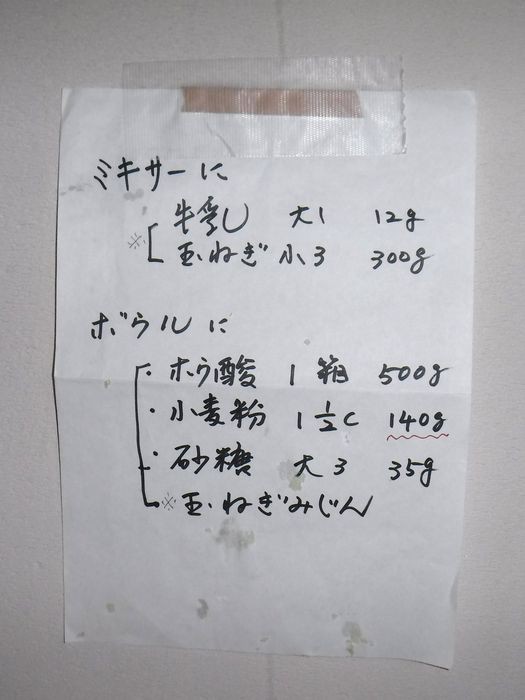 ミキサーに
牛乳 大1 12g
※ 玉ねぎ 小3 300g
ボウルに
・ホウ酸 1箱 500g
・小麦粉 1 1/2C 140g
・砂糖 大3 35g
※玉ねぎみじん